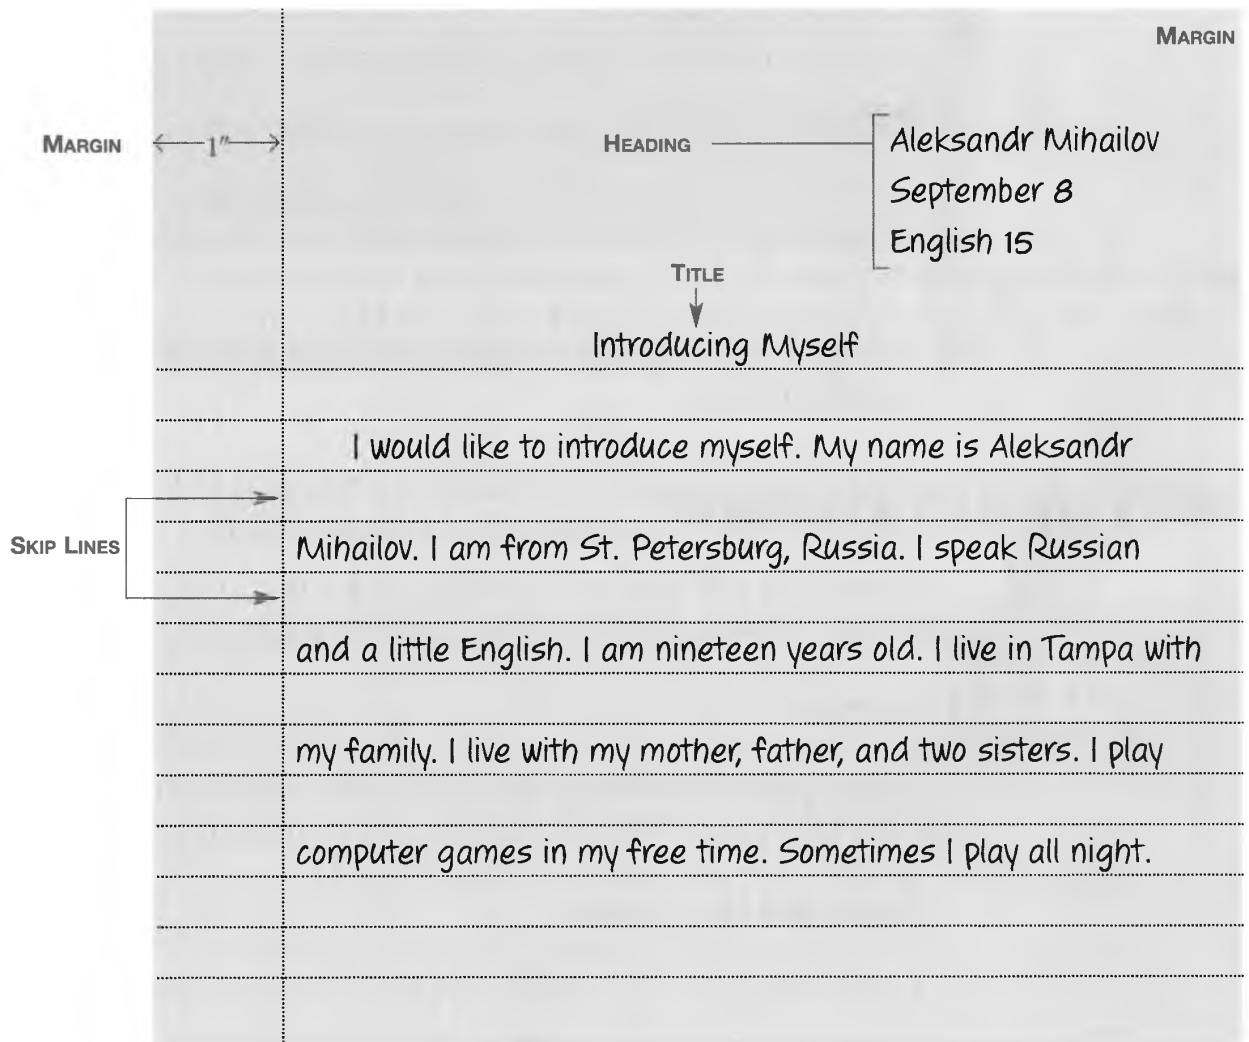 MARGIN
MARGIN
1"
HEADING
Aleksandr Mihailov
September 8
English 15
TITLE
Introducing Myself
I would like to introduce myself. My name is Aleksandr
SKIP LINES
Mihailov. I am from St. Petersburg, Russia. I speak Russian
and a little English. I am nineteen years old. I live in Tampa with
my family. I live with my mother, father, and two sisters. I play
computer games in my free time. Sometimes I play all night.